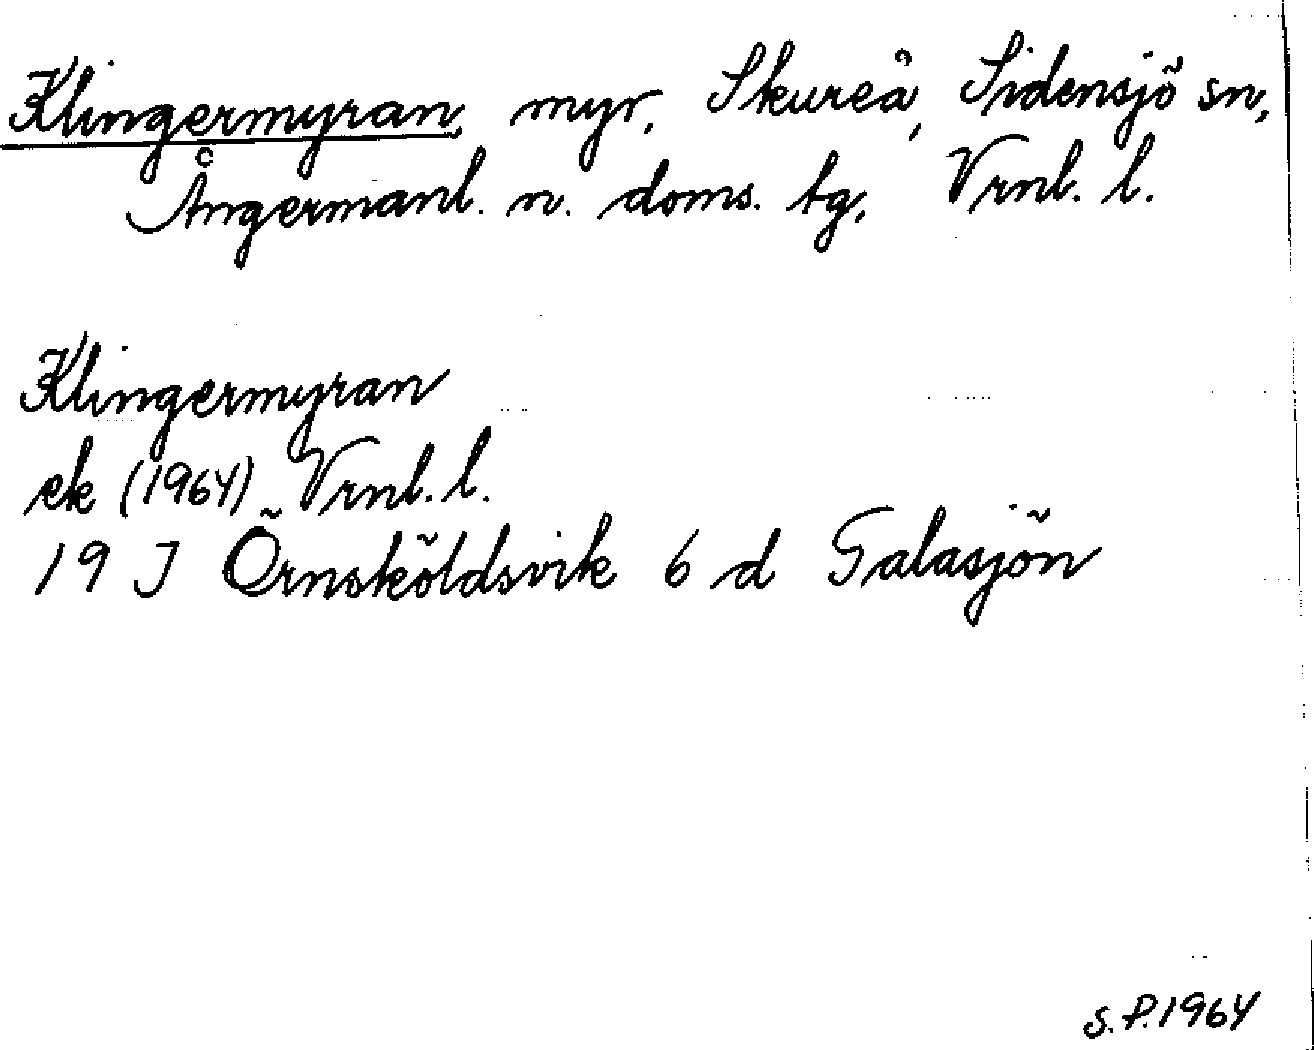 Klingermyran, myr, Skureå, Sidensjö sn,
Ångermanl. n. doms. tg, Vrnl. l.
Klingermyran
ek (1964) Vrnl. l.
19 J Örnsköldsvik 6 d Galasjön
S.P. 1964